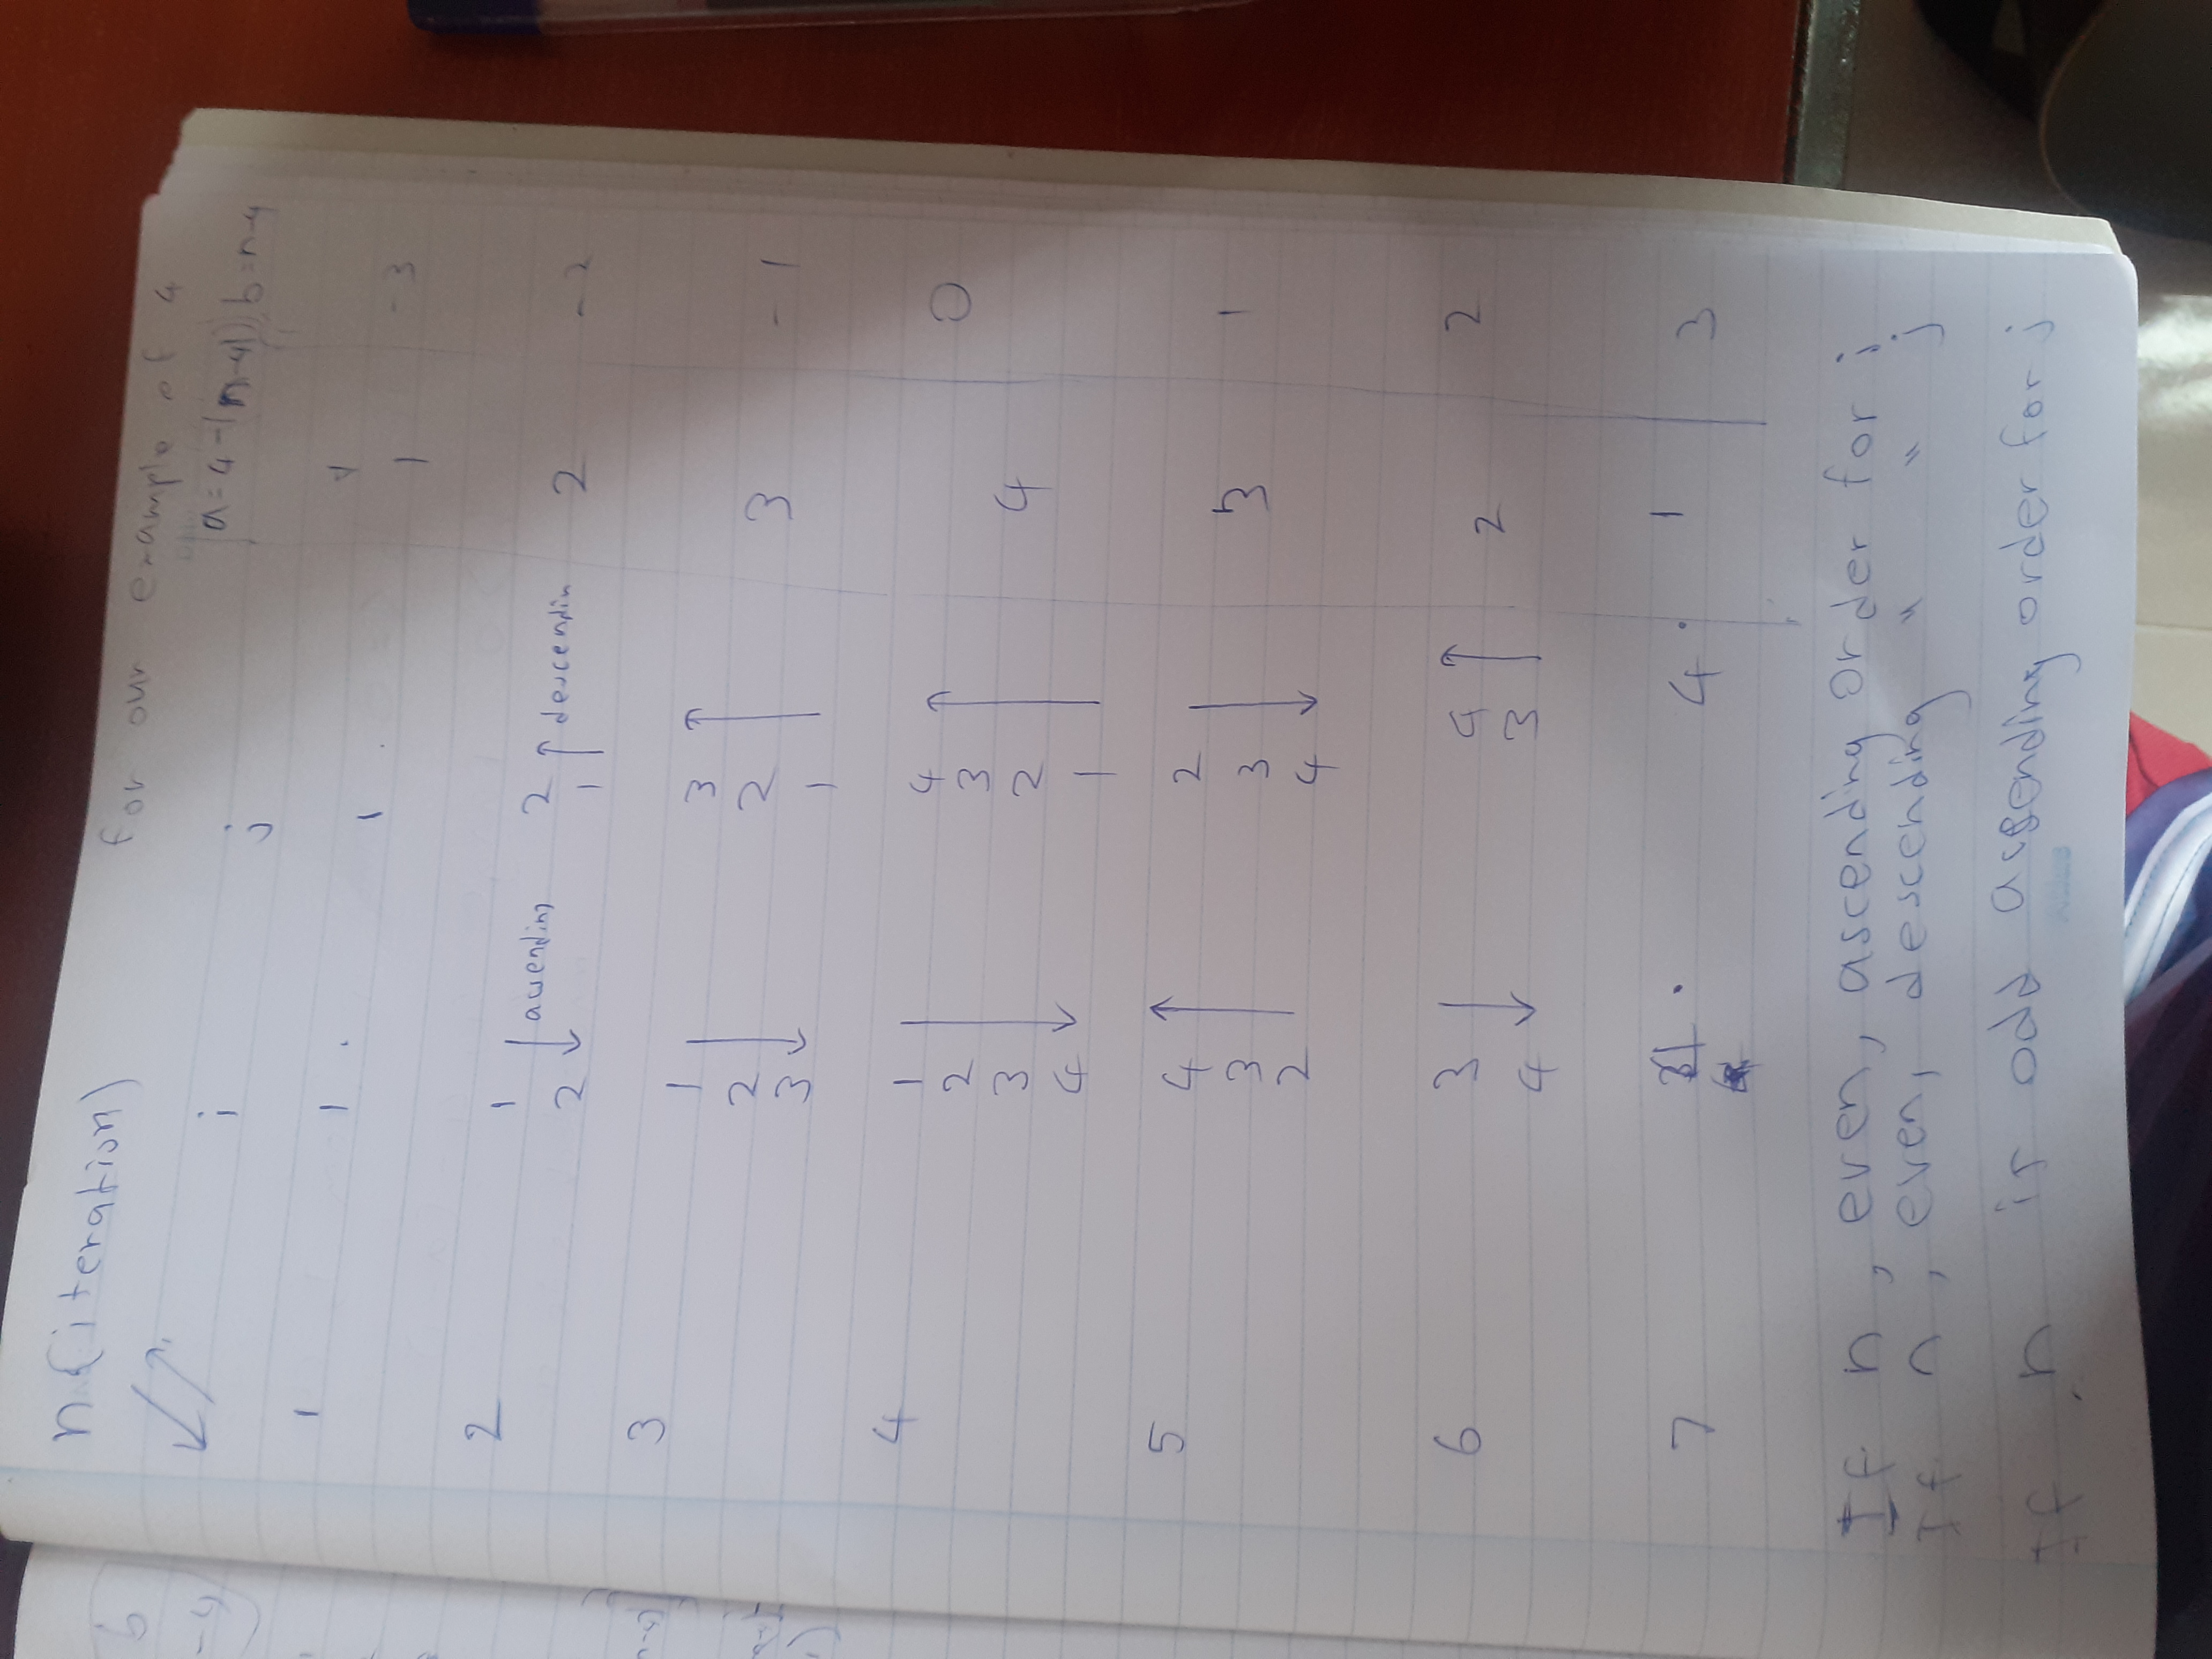 n (iteration)
for our example of 4
i j a = 4-|n-4| b = n-4
1 1 . 1 . 1 -3
2
1 ascending 2 descendin 2 -2
2 1
3
1 3
2 2 3 -1
3 1
4
1 4
2 3 0
3 2 4
4 1
5
4 2
3 3 3 1
2 4
6
3 4 2 2
4 3
7 4 . 1 3
If n , even, ascending order for i
If n , even, descending " " j
If n is odd ascending order for j